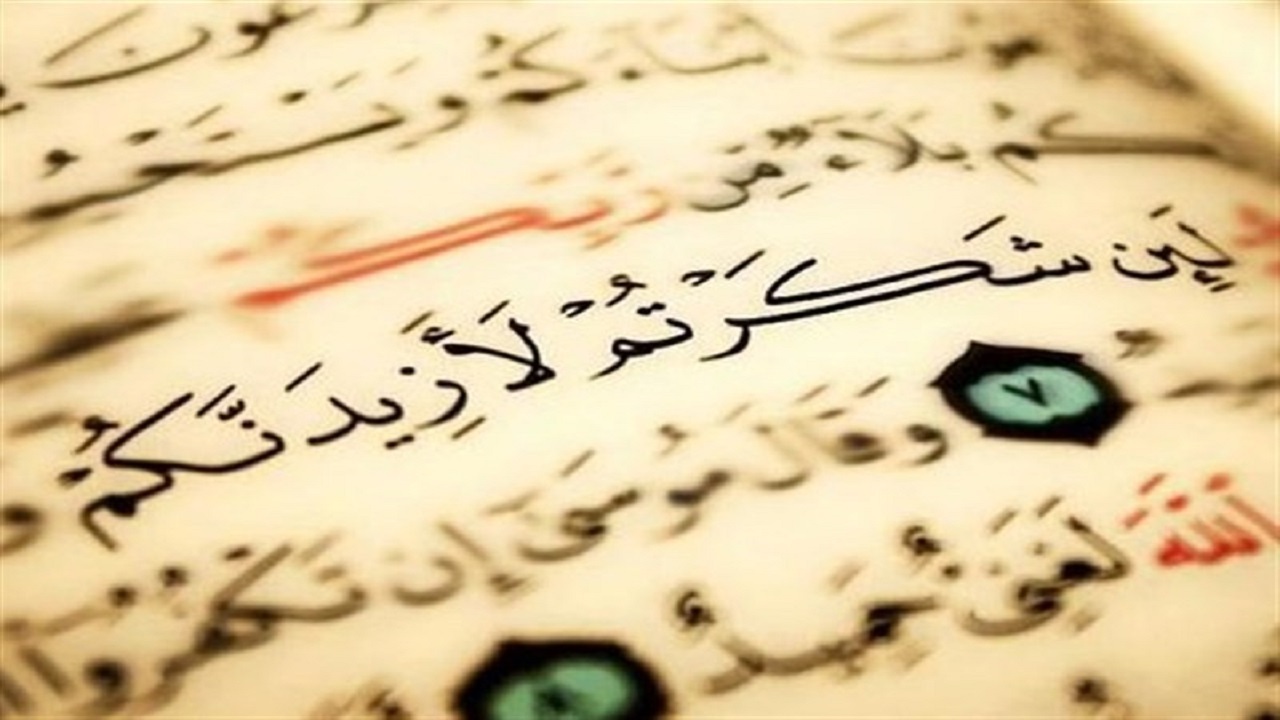 أَبْنَاءَكُمْ وَيَسْتَحْيُ
كُم بَلَاءٌ مِّن رَّبِّكُمْ
لَئِن شَكَرْتُمْ لَأَزِيدَنَّكُمْ و
٧ وَقَالَ مُوسَىٰ إِن تَكْفُرُوا
اللَّهَ لَغَنِيٌّ حَمِيدٌ ٨